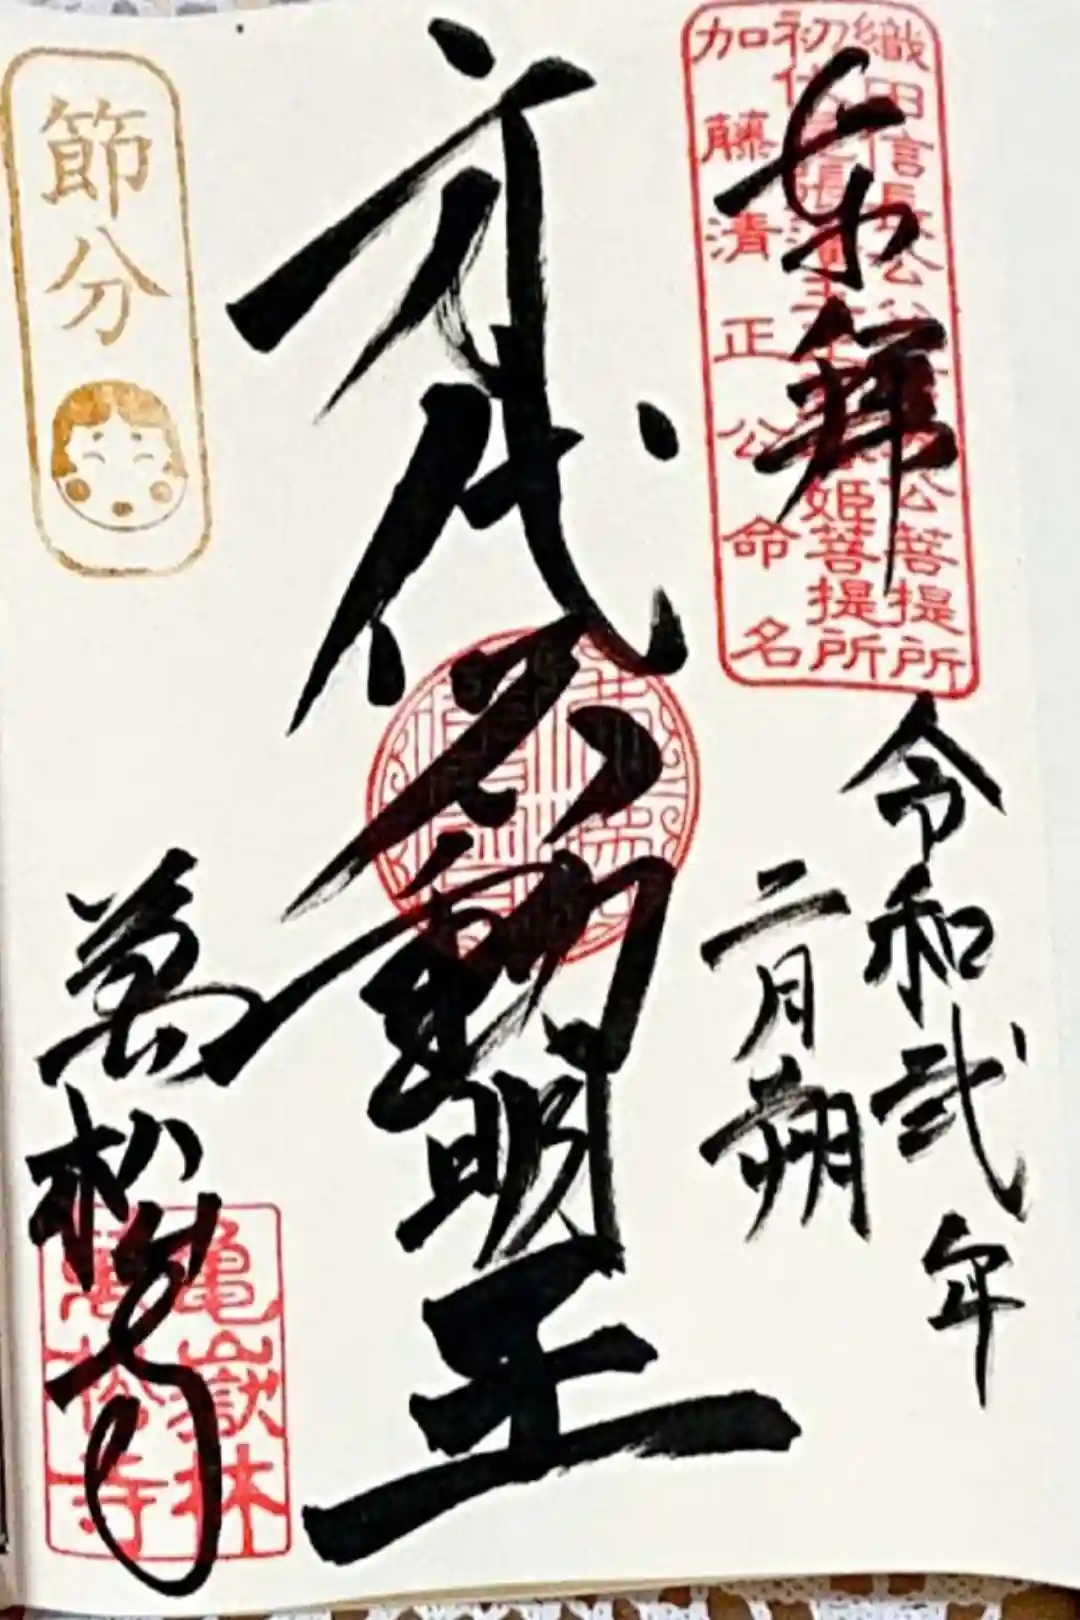 奉拝
織田信長公 公菩提所
初代 姫菩提所
加藤清正公命名
令和弐年
二月朔
身代不動明王
節分
萬松寺
亀嶽林
萬松寺